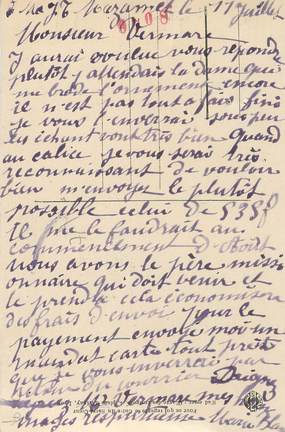 Mazamet le 11 juillet
6808
Monsieur Vermare
J aurai voulue vous repondre
plutôt j attendais la dame qui
me brode l'ornement encore
il n'est pas tout a fait fini
je vous l'enverrai sous peu
les échant vont très bien quand
au calice je vous serai très
reconnaissant de vouloir
bien m'envoyer le plutôt
possible celui de 535f
il me le faudrait au
commencement d'Août
nous avons le père missi
onnaire qui doit venir et
le prendra cela économisera
des frais d'envoi pour le
payement envoyé moi un
mandat carte tout prêt
que je vous enverrai par
retour du courrier Daigne
Vermare mes
respectueux